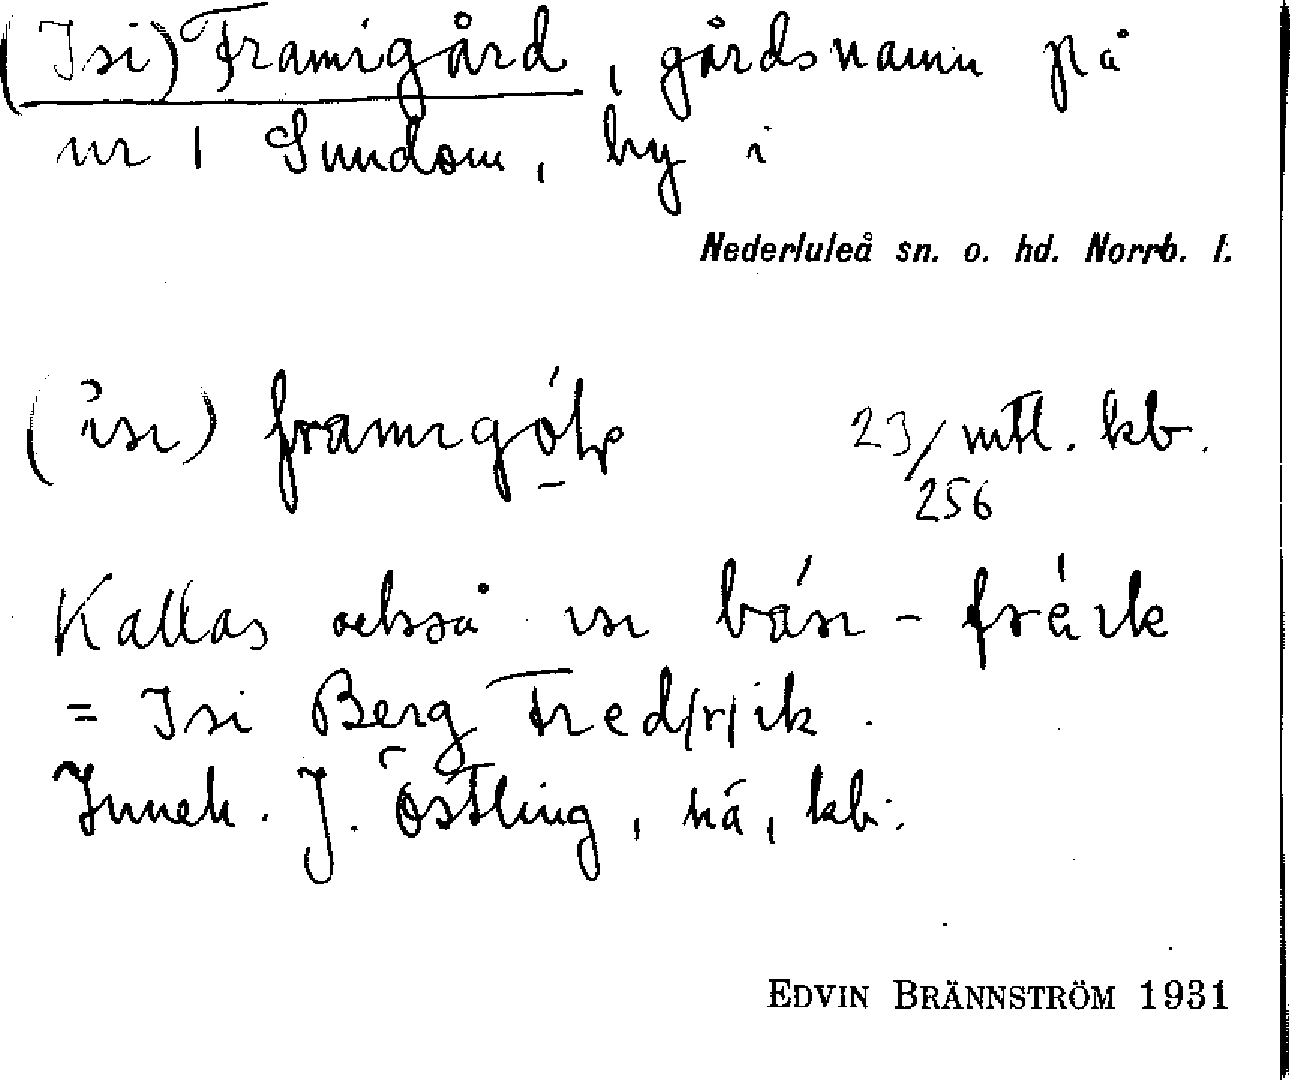 (Isi) Framigård, gårdsnamn på
nr 1 Sundom, by i
Nederluleå sn. o. hd. Norrb. l.
(ìsı) framıgóḷp 23/256 mtl. kb.
Kallas också ısı bársı - fråık
= Isi Berg Fred/r/ik.
Inneh. J. Östling, nå, kb.
EDVIN BRÄNNSTRÖM 1931